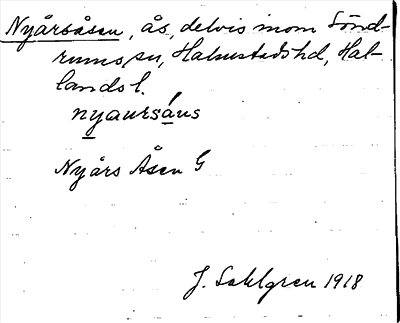 Nyårsåsen, ås, delvis inom Sönd-
rums sn, Halmstads hd, Hal-
lands l.
nyaursáus
Nyårs Åsen G
J. Sahlgren 1918